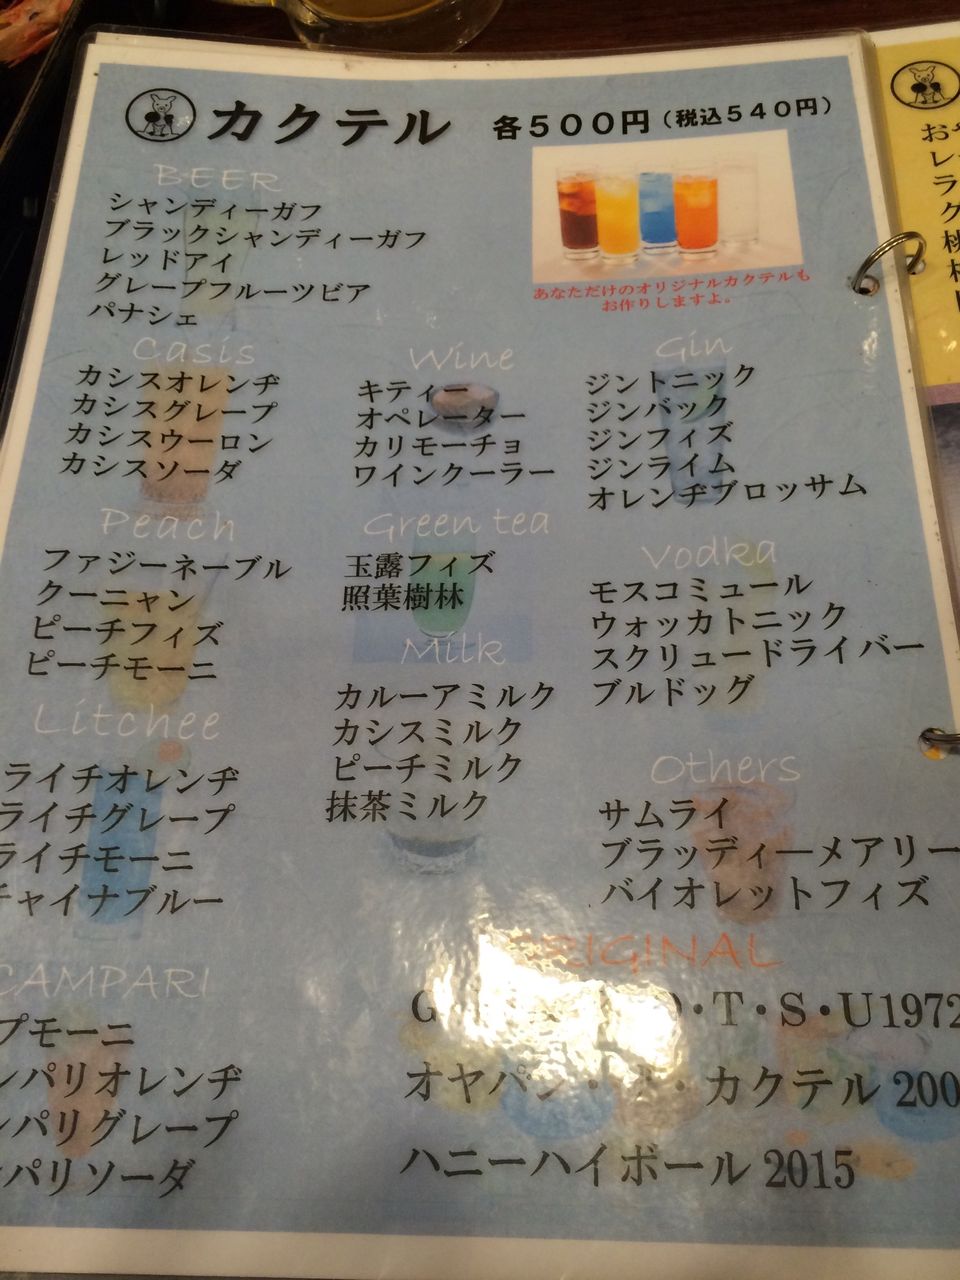 カクテル 各500円(税込540円)
BEER
シャンディーガフ
ブラックシャンディーガフ
レッドアイ
グレープフルーツビア
パナシェ
あなただけのオリジナルカクテルも
お作りしますよ。
Casis
カシスオレンヂ
カシスグレープ
カシスウーロン
カシスソーダ
Wine
キティー
オペレーター
カリモーチョ
ワインクーラー
Gin
ジントニック
ジンバック
ジンフィズ
ジンライム
オレンヂブロッサム
Peach
ファジーネーブル
クーニャン
ピーチフィズ
ピーチモーニ
Green tea
玉露フィズ
照葉樹林
Vodka
モスコミュール
ウォッカトニック
スクリュードライバー
ブルドッグ
Milk
カルーアミルク
カシスミルク
ピーチミルク
抹茶ミルク
Litchee
ライチオレンヂ
ライチグレープ
ライチモーニ
チャイナブルー
Others
サムライ
ブラッディーメアリー
バイオレットフィズ
CAMPARI
プモーニ
ンパリオレンヂ
ンパリグレープ
パリソーダ
ORIGINAL
G T・S・U1972
オヤパン・ カクテル 200
ハニーハイボール 2015
お
レ
ラ
グ
桃